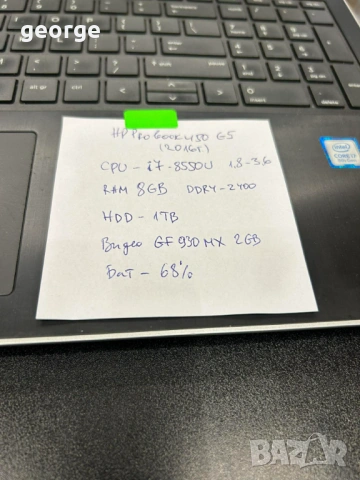 george
alt gr
ctrl
HP ProBook 450 G5
(2016г.)
CPU - i7-8550U 1.8-3.6
RAM 8GB DDR4-2400
HDD - 1TB
Видео GF 930MX 2GB
Бат - 68%
intel
CORE i7
BAZAR